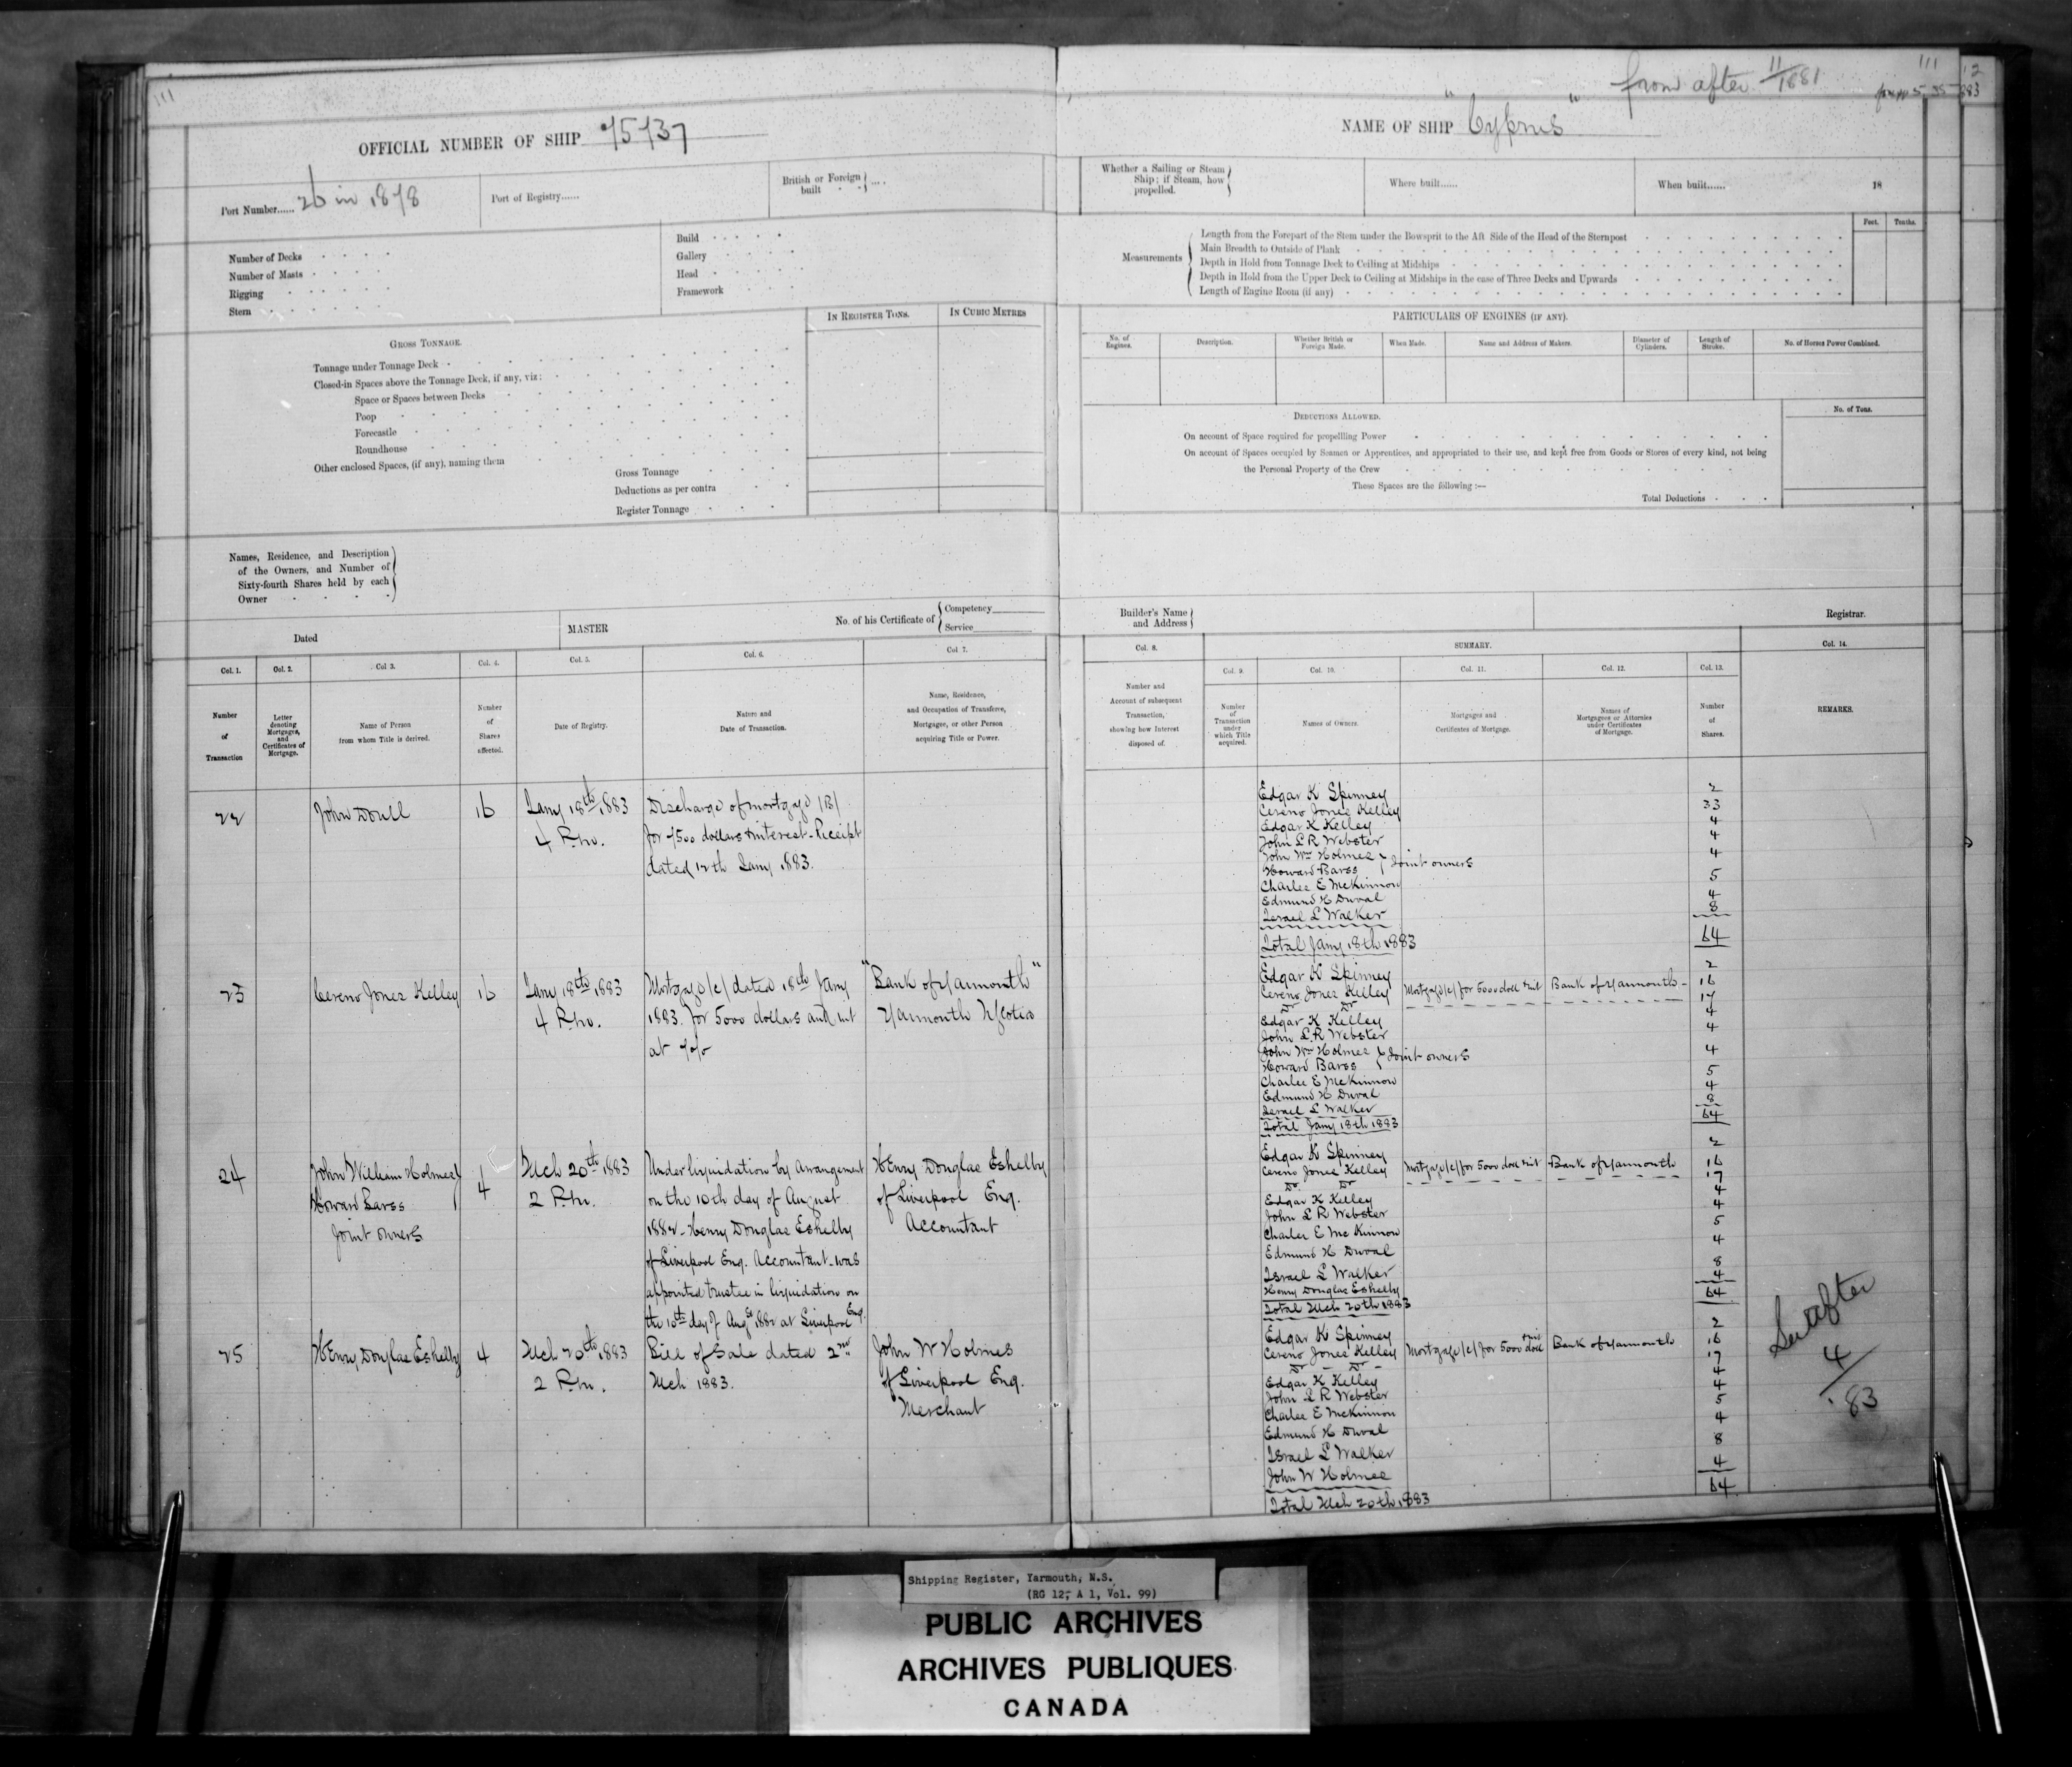 111
OFFICIAL NUMBER OF SHIP 75737
Port Number...... 26 in 1878
Port of Registry......
British or Foreign built
Number of Decks
Number of Masts
Rigging
Stem
Build
Gallery
Head
Framework
IN REGISTER TONS.
IN CUBIC METRES
GROSS TONNAGE.
Tonnage under Tonnage Deck
Closed-in Spaces above the Tonnage Deck, if any, viz:
Space or Spaces between Decks
Poop
Forecastle
Roundhouse
Other enclosed Spaces, (if any), naming them
Gross Tonnage
Deductions as per contra
Register Tonnage
Names, Residence, and Description
of the Owners, and Number of
Sixty-fourth Shares held by each
Owner
Dated
MASTER
No. of his Certificate of
Competency
Service
Col. 1.
Col. 2.
Col 3.
Col. 4.
Col. 5.
Col. 6.
Col. 7.
Number of Transaction
Letter denoting Mortgages, and Certificates of Mortgage.
Name of Person from whom Title is derived.
Number of Shares affected.
Date of Registry.
Nature and Date of Transaction.
Name, Residence, and Occupation of Transferee, Mortgagee, or other Person acquiring Title or Power.
22
John Doull
16
Jany 18th 1883
4 P.m.
Discharge of mortgage (B)
for 7500 dollars & interest - Receipt
dated 12th Jany 1883.
23
Cereno Jones Kelley
16
Jany 18th 1883
4 P.m.
Mortgage (c) dated 18th Jany
1883 for 5000 dollars and int
at 7 o/o
"Bank of Yarmouth"
Yarmouth N Scotia
24
John William Holmes
Howard Barss
Joint owners
4
Mch 20th 1883
2 P.m.
Under liquidation by Arrangement
on the 10th day of August
1882 - Henry Douglas Eshelby
of Liverpool Eng. Accountant - was
appointed trustee in liquidation on
the 10th day of Augst 1882 at Liverpool Eng.
Henry Douglas Eshelby
of Liverpool Eng.
Accountant
25
Henry Douglas Eshelby
4
Mch 20th 1883
2 P.m.
Bill of Sale dated 2nd
Mch 1883.
John W Holmes
of Liverpool Eng.
Merchant
from after 11/1881
111
NAME OF SHIP "Cyprus"
Whether a Sailing or Steam
Ship; if Steam, how
propelled.
Where built......
When built......
18
Feet.
Tenths.
Measurements
Length from the Forepart of the Stem under the Bowsprit to the Aft Side of the Head of the Sternpost
Main Breadth to Outside of Plank
Depth in Hold from Tonnage Deck to Ceiling at Midships
Depth in Hold from the Upper Deck to Ceiling at Midships in the case of Three Decks and Upwards
Length of Engine Room (if any)
PARTICULARS OF ENGINES (IF ANY).
No. of Engines.
Description.
Whether British or Foreign Made.
When Made.
Name and Address of Makers.
Diameter of Cylinders.
Length of Stroke.
No. of Horses Power Combined.
DEDUCTIONS ALLOWED.
No. of Tons.
On account of Space required for propelling Power
On account of Spaces occupied by Seamen or Apprentices, and appropriated to their use, and kept free from Goods or Stores of every kind, not being
the Personal Property of the Crew
These Spaces are the following :—
Total Deductions
Builder's Name
and Address
Registrar.
Col. 8.
SUMMARY.
Col. 14.
Col. 9.
Col. 10.
Col. 11.
Col. 12.
Col. 13.
Number and Account of subsequent Transaction, showing how Interest disposed of.
Number of Transaction under which Title acquired.
Names of Owners.
Mortgages and Certificates of Mortgage.
Names of Mortgagees or Attornies under Certificates of Mortgage.
Number of Shares.
REMARKS.
Edgar K Spinney 2
Cereno Jones Kelley 33
Edgar K Kelley 4
John L R Webster 4
John Wm Holmes
Howard Barss } Joint owners 4
Charles E McKinnon 5
Edmund H Duval 4
Israel L Walker 8
Total Jany 18th 1883 64
Edgar K Spinney 2
Cereno Jones Kelley Mortgage (c) for 5000 doll & int Bank of Yarmouth 16
Do Do 17
Edgar K Kelley 4
John L.R Webster 4
John Wm Holmes
Howard Barss } Joint owners 4
Charles E McKinnon 5
Edmund H Duval 4
Israel L Walker 8
Total Jany 18th 1883 64
Edgar K Spinney 2
Cereno Jones Kelley Mortgage (c) for 5000 doll & int Bank of Yarmouth 16
Do. Do 17
Edgar K Kelley 4
John L R Webster 4
Charles E McKinnon 5
Edmund H Duval 4
Israel L Walker 8
Henry Douglas Eshelby 4
Total Mch 20th 1883 64
Edgar K Spinney 2
Cereno Jones Kelley Mortgage (c) for 5000 doll & int Bank of Yarmouth 16
Do - Do - 17
Edgar K Kelley 4
John L R Webster 4
Charles E McKinnon 5
Edmund H Duval 4
Israel L Walker 8
John W Holmes 4
Total Mch 20th 1883 64
See after
4/83
Shipping Register, Yarmouth, N.S.
(RG 12, A 1, Vol. 99)
PUBLIC ARCHIVES
ARCHIVES PUBLIQUES
CANADA